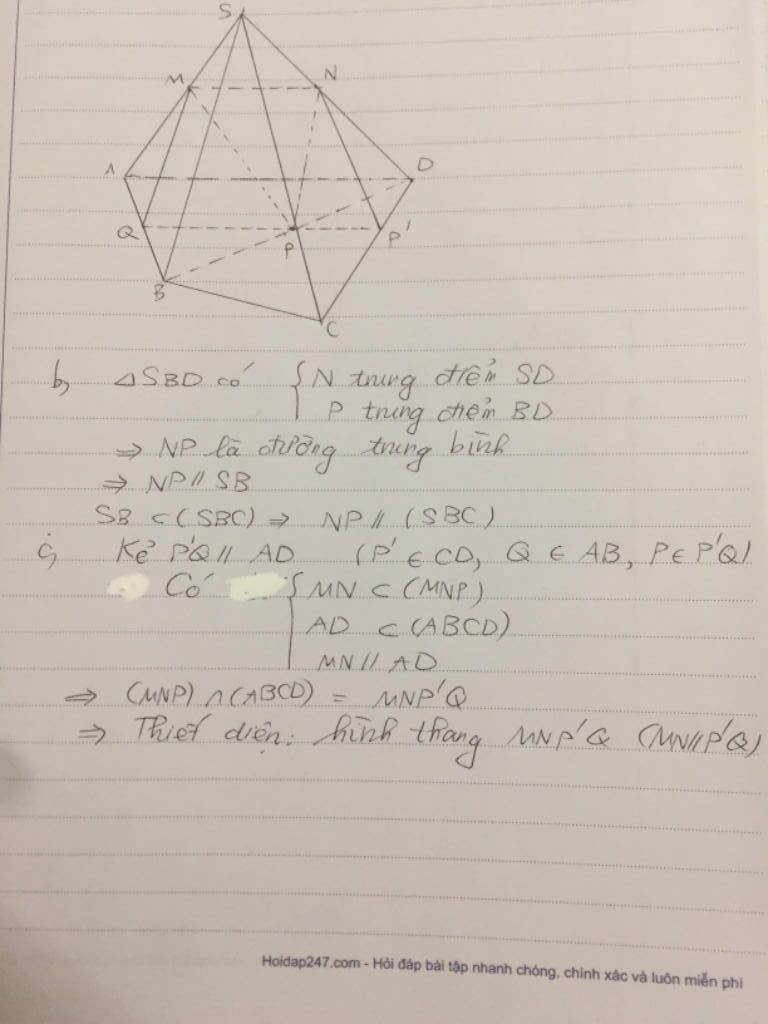 S
M
N
A
D
Q
P
P'
B
C
b, △SBD có { N trung điểm SD
P trung điểm BD
⇒ NP là đường trung bình
⇒ NP // SB
SB ⊂ (SBC) ⇒ NP // (SBC)
c, Kẻ P'Q // AD (P' ∈ CD, Q ∈ AB, P ∈ P'Q)
Có { MN ⊂ (MNP)
AD ⊂ (ABCD)
MN // AD
⇒ (MNP) ∩ (ABCD) = MNP'Q
⇒ Thiết diện: hình thang MNP'Q (MN // P'Q)
Hoidap247.com - Hỏi đáp bài tập nhanh chóng, chính xác và luôn miễn phí